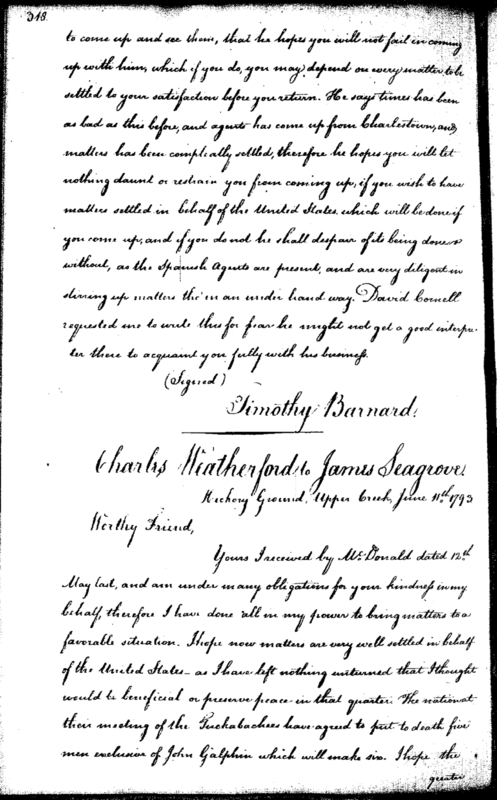 318.
to come up and see them, that he hopes you will not fail in coming
up with him, which if you do, you may depend on every matter to be
settled to your satisfaction before you return. He says times has been
as bad as this before, and agents has come up from Charlestown, and
matters has been compleatly settled, therefore he hopes you will let
nothing daunt or restrain you from coming up, if you wish to have
matters settled in behalf of the United States, which will be done if
you come up, and if you do not he shall despair of its being done
without, as the Spanish Agents are present, and are very diligent in
stirring up matters tho' in an under hand way. David Cornell
requested me to write this for fear he might not get a good interpre-
ter there to acquaint you fully with his business.
(Signed)
Timothy Barnard.
Charles Weatherford to James Seagrove.
Hickory Ground, Upper Creek, June 11th 1793
Worthy Friend,
Yours I received by Mc.Donald dated 12th
May last, and am under many obligations for your kindness in my
behalf, therefore I have done all in my power to bring matters to a
favorable situation. I hope now matters are very well settled in behalf
of the United States - as I have left nothing unturned that I thought
would be beneficial or preserve peace in that quarter. The nation at
their meeting of the Tuckabachees have agreed to put to death five
men exclusive of John Galphin which will make six. I hope the
greater